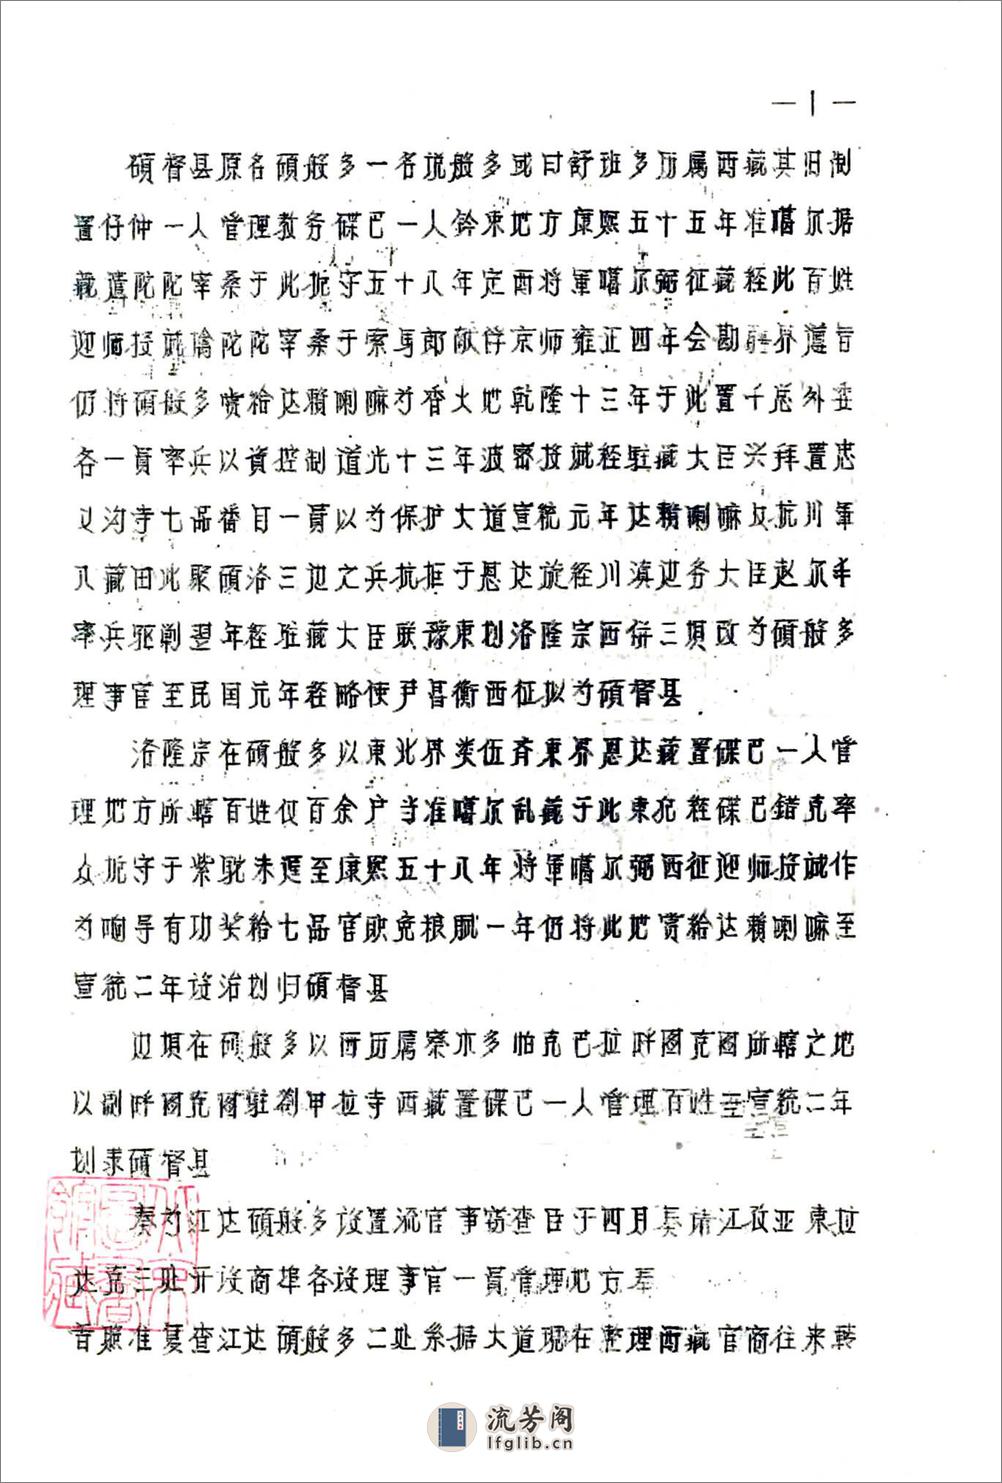 —1—
硕督县原名硕般多一名说般多或曰舒班多历属西藏其旧制
置仔仲一人管理教务碟巴一人铃束地方康熙五十五年准噶尔据
藏遣陀陀宰桑于此扼守五十八年定西将軍噶尔弼征藏经此百姓
迎师投誠擒陀陀宰桑于索马郎献俘京师雍正四年会勘疆界遵旨
仍将硕般多赏给达賴喇嘛为香火地乾隆十三年于此置千总外委
各一員率兵以資控制道光十三年波密投誠经駐藏大臣兴拜置忠
义沟寺七品番目一員以为保护大道宣統元年达賴喇嘛反抗川軍
入藏田此聚硕洛三边之兵抗拒于恩达旋经川滇边务大臣赵尔丰
率兵驱剿翌年经驻藏大臣联豫東划洛隆宗西併三垻改为硕般多
理事官至民国元年经略使尹昌衡西征拟为硕督县
洛隆宗在硕般多以東北界类伍齐東界恩达藏置碟巴一人管
理地方所轄百姓仅百余户当准噶尔乱藏于此東充经碟巴錯克率
众扼守于紫駝未逞至康熙五十八年将軍噶尔弼西征迎师投誠作
为响导有功奖给七品官职竞粮賦一年仍将此地賞給达賴喇嘛至
宣統二年设治划归硕督县
边垻在硕般多以西历属察木多帕克巴拉呼圖克圖所轄之地
以副呼圖克圖駐剳甲拉寺西藏置碟巴一人管理百姓至宣統二年
划隶硕督县
奏为江达硕般多设置流官事窃查臣于四月奏請江孜亚東拉
达克三处开设商埠各设理事官一員管理地方奉
旨照准复查江达硕般多二处系据大道现在整理西藏官商往来轉
流芳阁
lfglib.cn